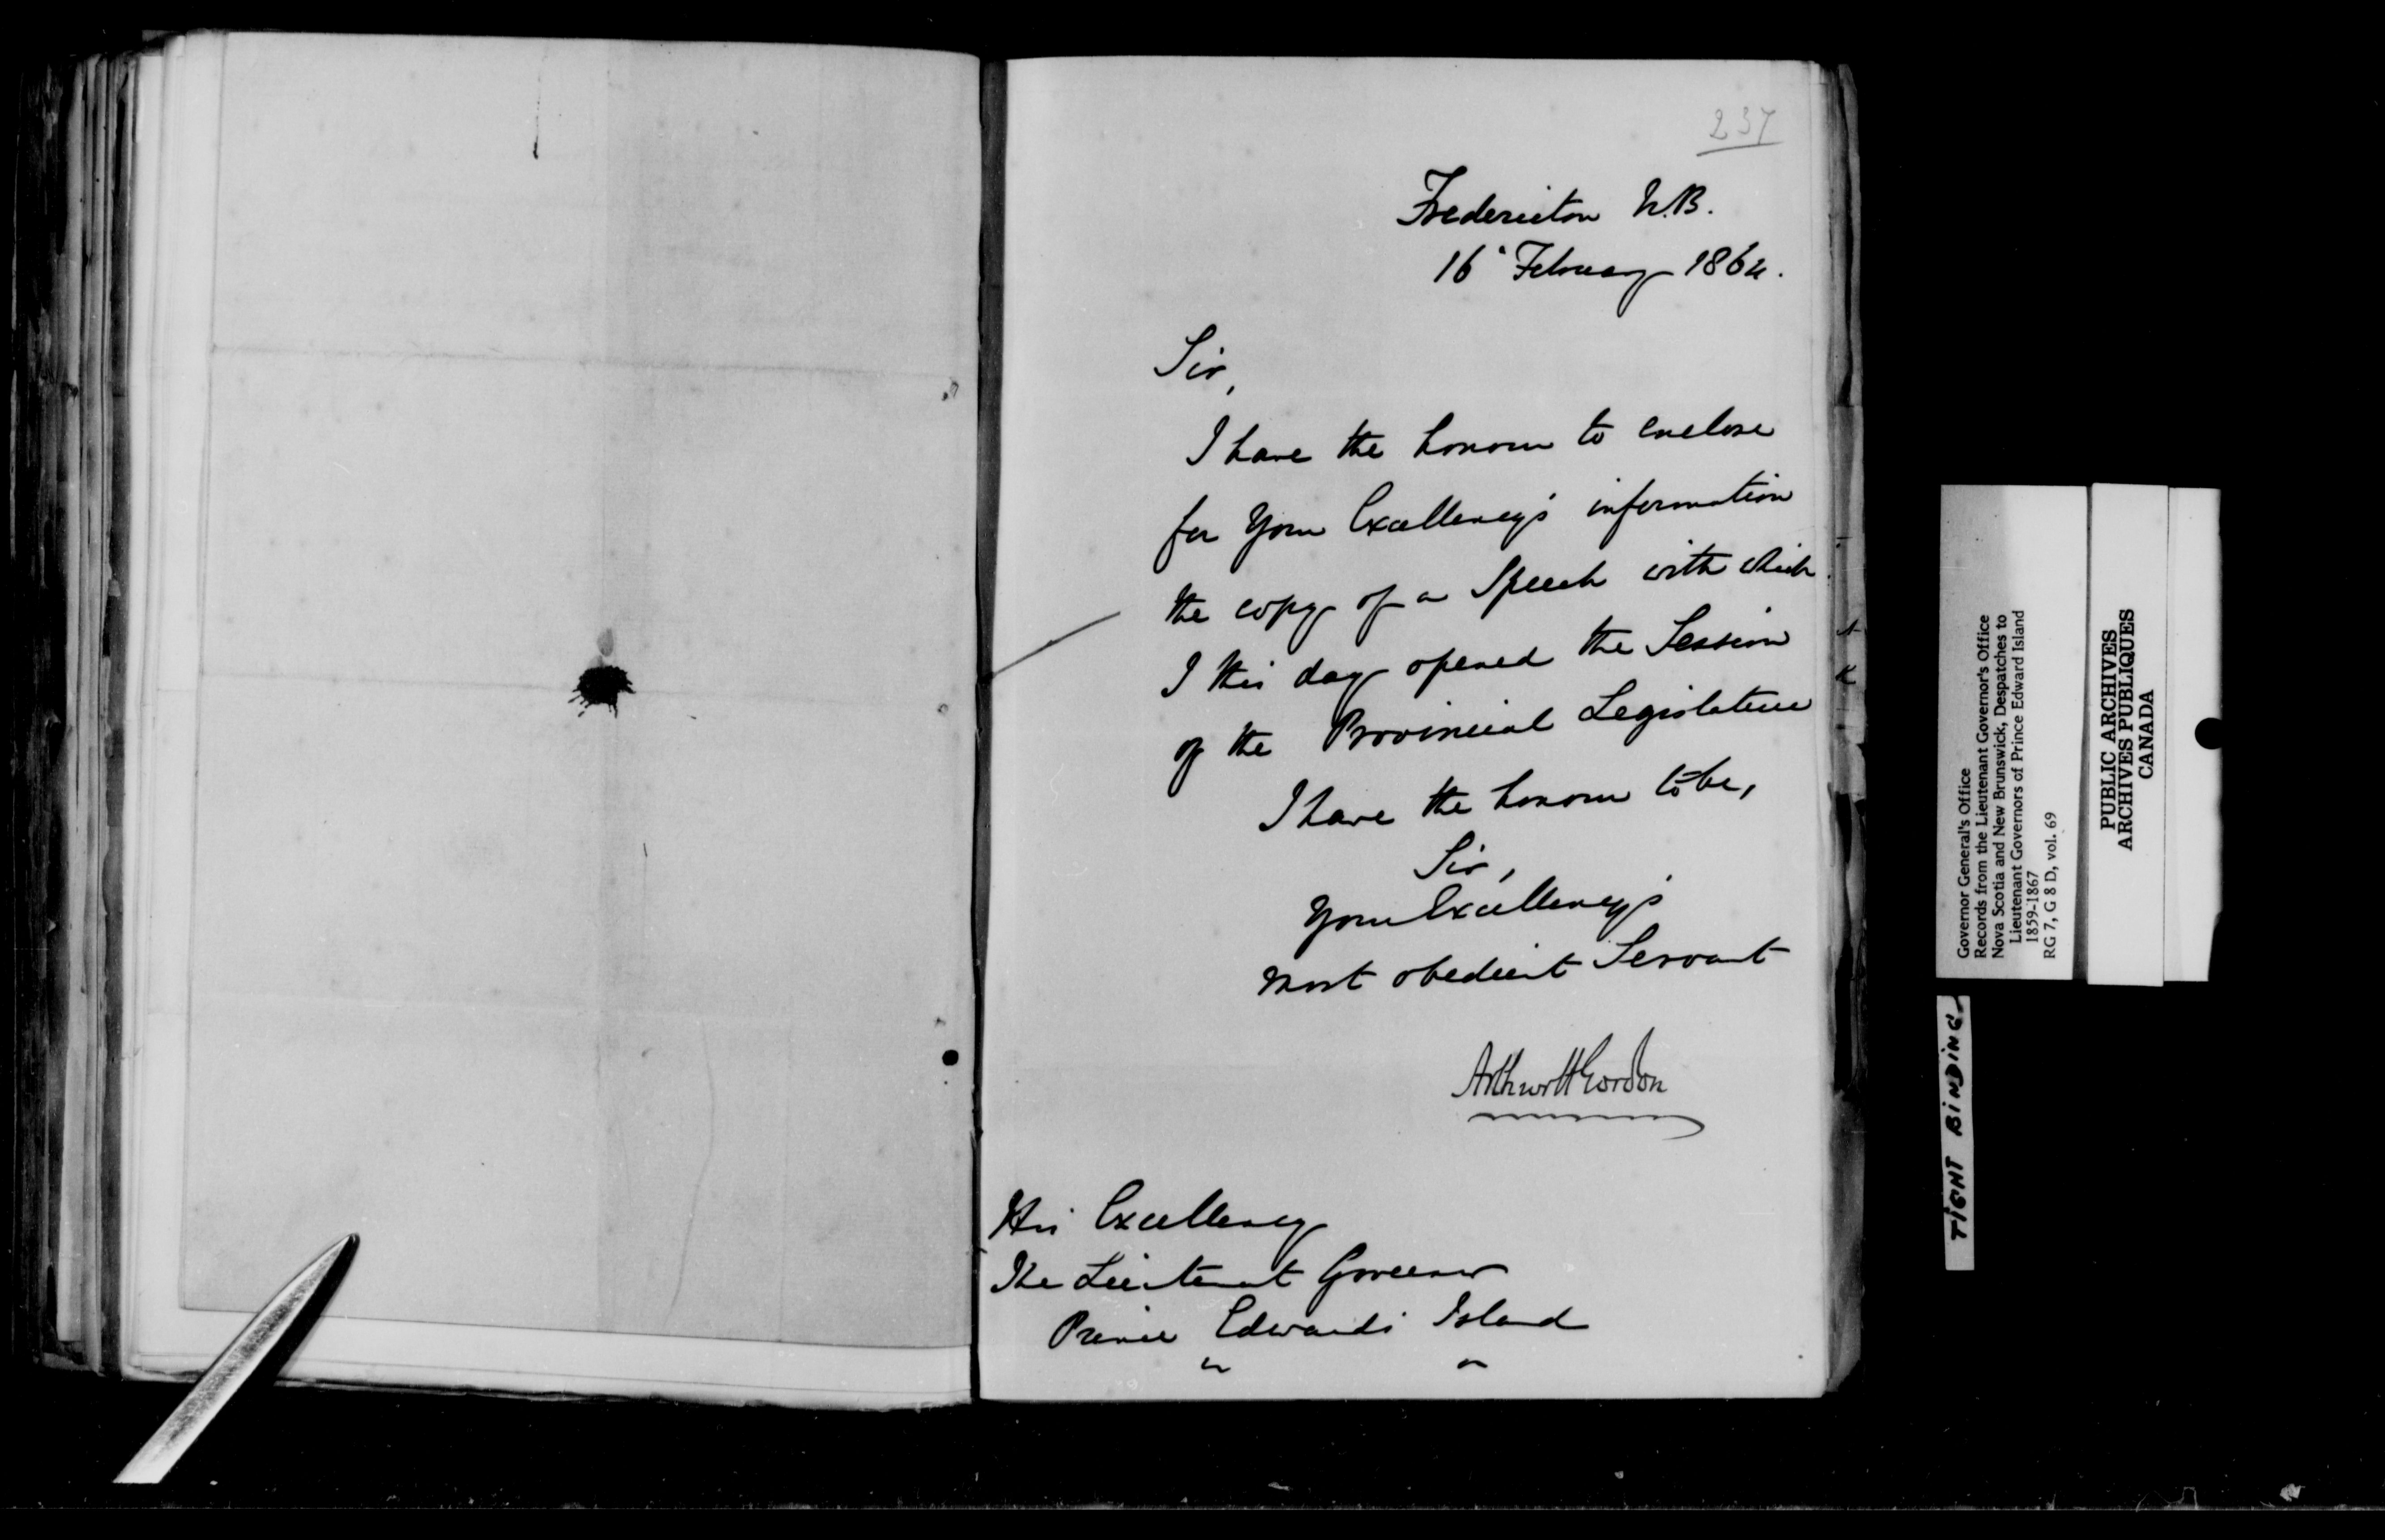 237
Fredericton N.B.
16 February 1864.
Sir,
I have the honour to enclose
for Your Excellency's information
the copy of a Speech with which
I this day opened the Session
of the Provincial Legislature
I have the honour to be,
Sir,
Your Excellency's
most obedient Servant
Arthur H Gordon
His Excellency
The Lieutenant Governor
Prince Edwards Island
Governor General's Office
Records from the Lieutenant Governor's Office
Nova Scotia and New Brunswick, Despatches to
Lieutenant Governors of Prince Edward Island
1859-1867
RG 7, G 8 D, vol. 69
PUBLIC ARCHIVES
ARCHIVES PUBLIQUES
CANADA
TIGHT BINDING